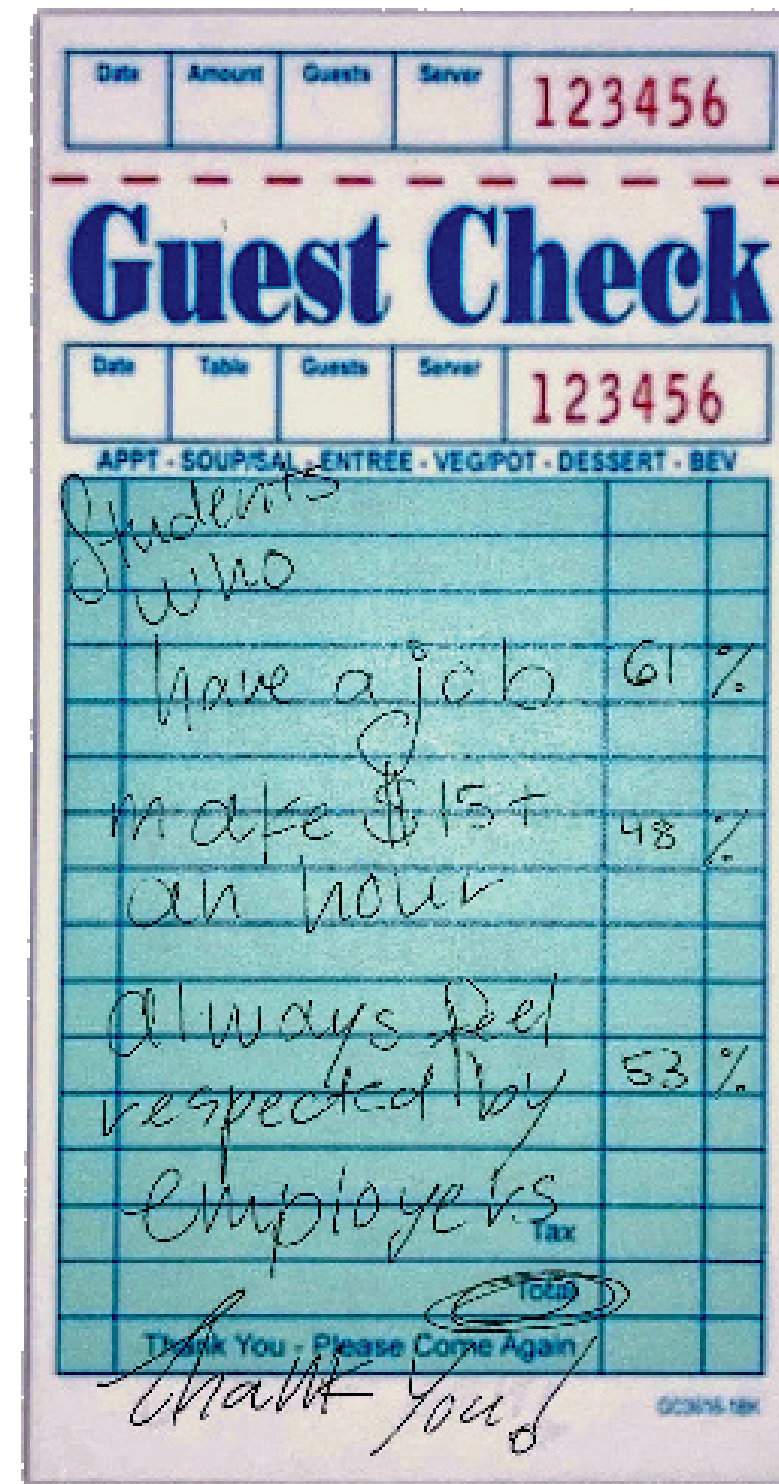 Date Amount Guests Server 123456
Guest Check
Date Table Guests Server 123456
APPT - SOUP/SAL - ENTREE - VEG/POT - DESSERT - BEV
Students
who
have a job 61 %
make $15+ 48 %
an hour
always feel
respected by 53 %
employers
Tax
Total
Thank You - Please Come Again
Thank You!